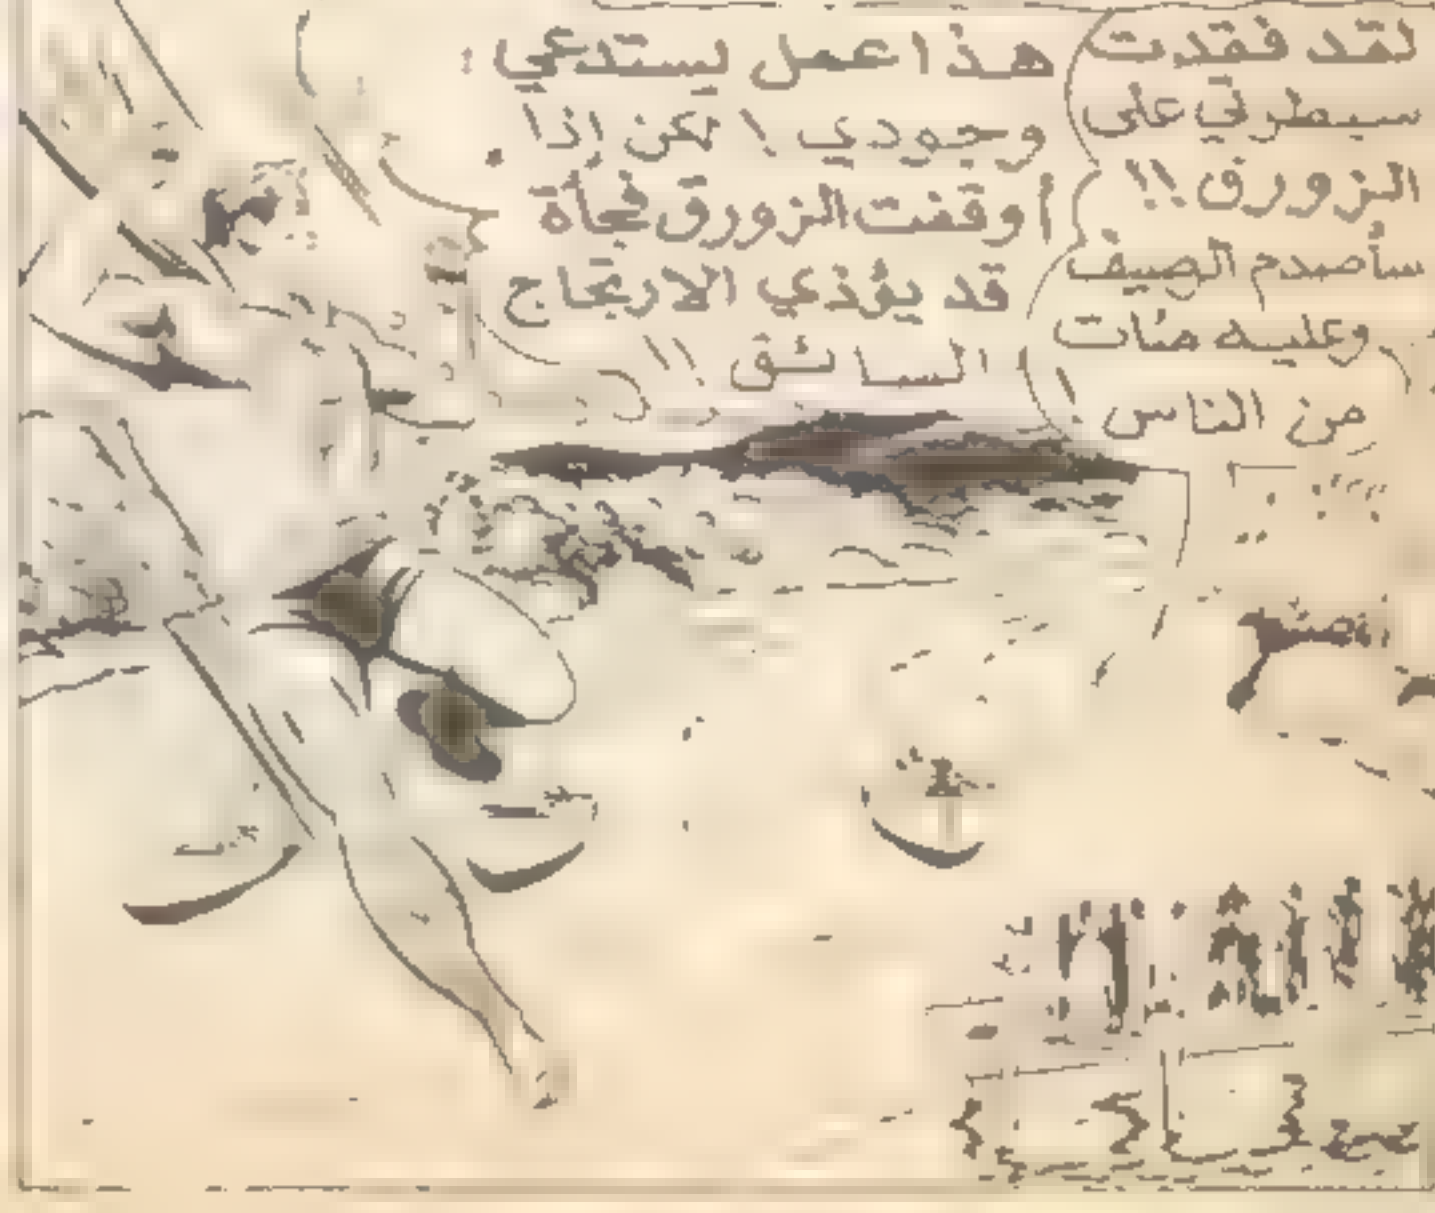 لقد فقدت
سيطرتي على
الزورق !!
سأصدم الصيف
وعليه مئات
من الناس !
هذا عمل يستدعي
وجودي ! لكن إذا
أوقفت الزورق فجأة
قد يؤذي الارتجاج
السائق !!